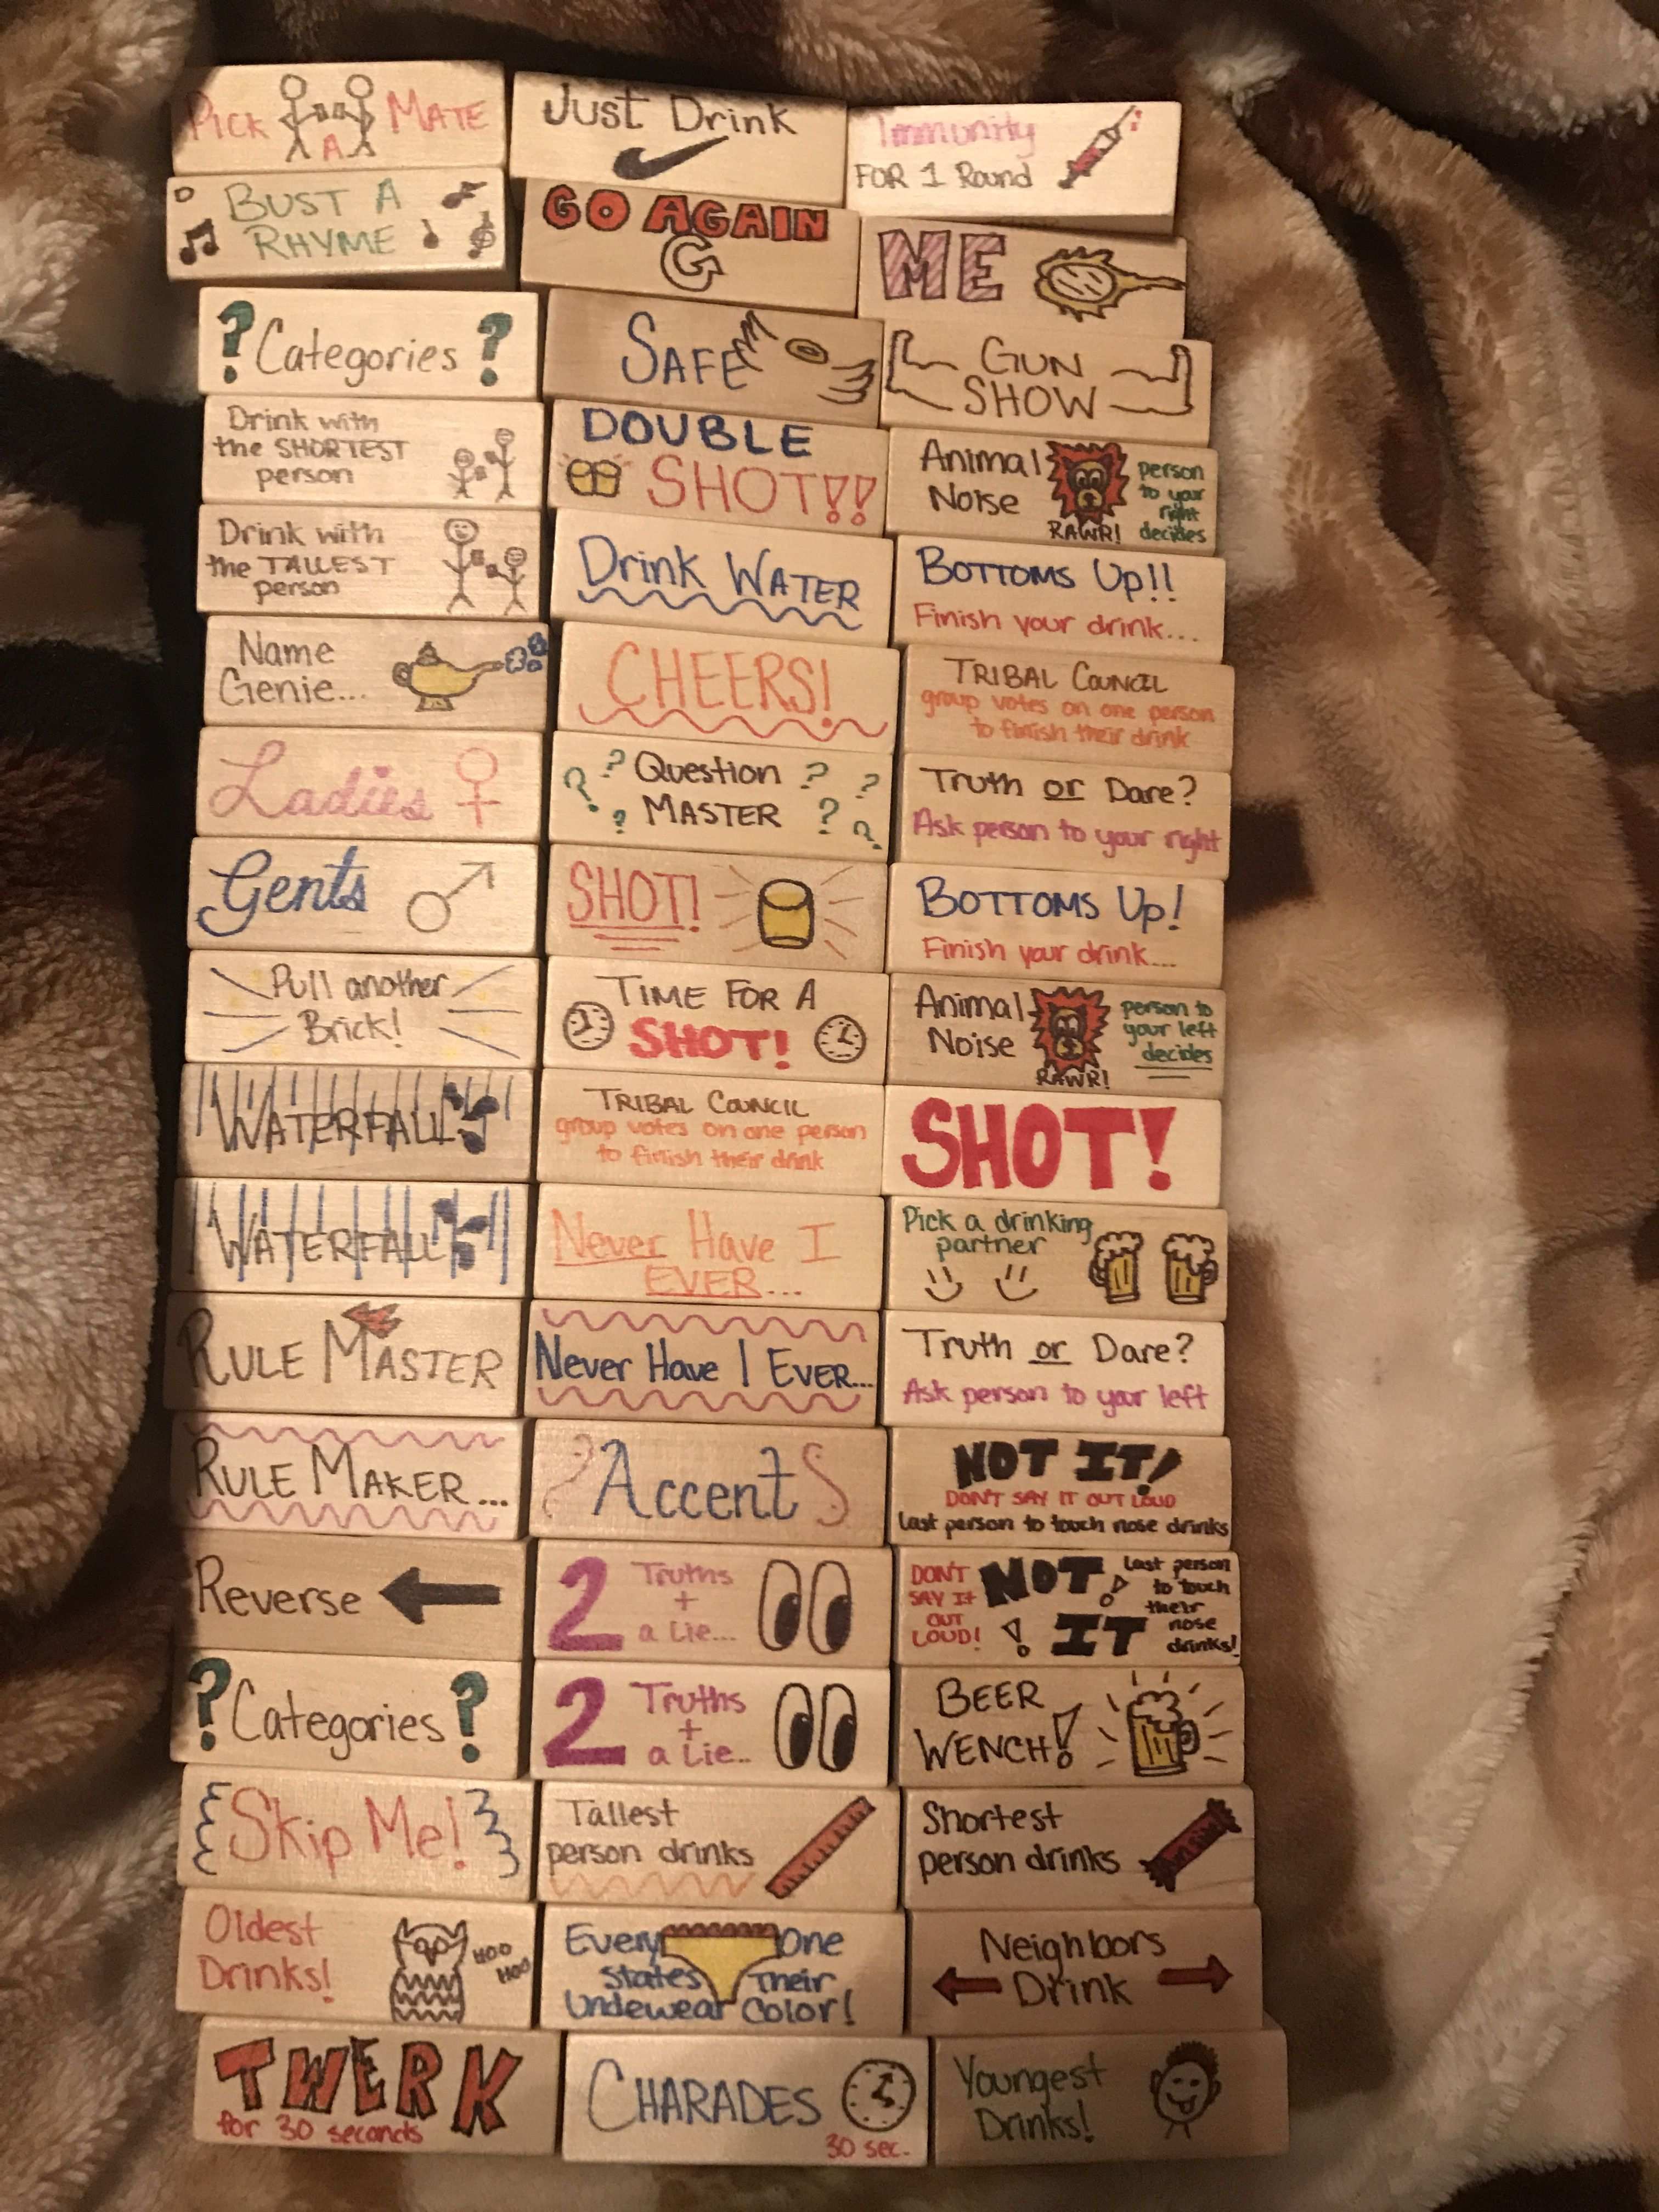 PICK A MATE
BUST A
RHYME
? Categories ?
Drink with
the SHORTEST
person
Drink with
the TALLEST
person
Name
Genie...
Ladies
Gents
Pull another
Brick!
WATERFALL
WATERFALL
RULE MASTER
RULE MAKER...
Reverse
? Categories ?
Skip Me!
Oldest
Drinks!
HOO
HOO
TWERK
for 30 seconds
Just Drink
GO AGAIN
SAFE
DOUBLE
SHOT!!
Drink WATER
CHEERS!
? ? Question ? ?
? MASTER ? ?
SHOT!
TIME FOR A
SHOT!
TRIBAL COUNCIL
group votes on one person
to finish their drink
Never Have I
EVER...
Never Have I EVER...
Accent
2 Truths
+
a Lie...
2 Truths
+
a Lie...
Tallest
person drinks
Every One
States Their
Undewear Color!
CHARADES
30 sec.
Immunity
FOR 1 Round
ME
GUN
SHOW
Animal
Noise
RAWR!
person
to your
right
decides
BOTTOMS Up!!
Finish your drink...
TRIBAL COUNCIL
group votes on one person
to finish their drink
Truth or Dare?
Ask person to your right
BOTTOMS Up!
Finish your drink...
Animal
Noise
RAWR!
person to
your left
decides
SHOT!
Pick a drinking
partner
Truth or Dare?
Ask person to your left
NOT IT!
DON'T SAY IT OUT LOUD
last person to touch nose drinks
DON'T
SAY It
OUT
LOUD!
NOT!
! IT
Last person
to touch
their
nose
drinks!
BEER
WENCH!
Shortest
person drinks
Neighbors
Drink
Youngest
Drinks!